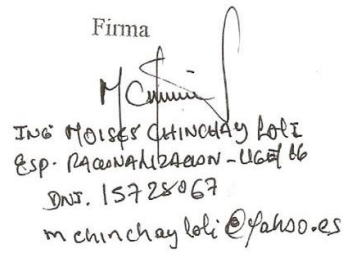 Firma
ING MOISES CHINCHAY LOLI
ESP. RACIONALIZACION - UGEL 06
DNI. 15728067
mchinchayloli@yahoo.es